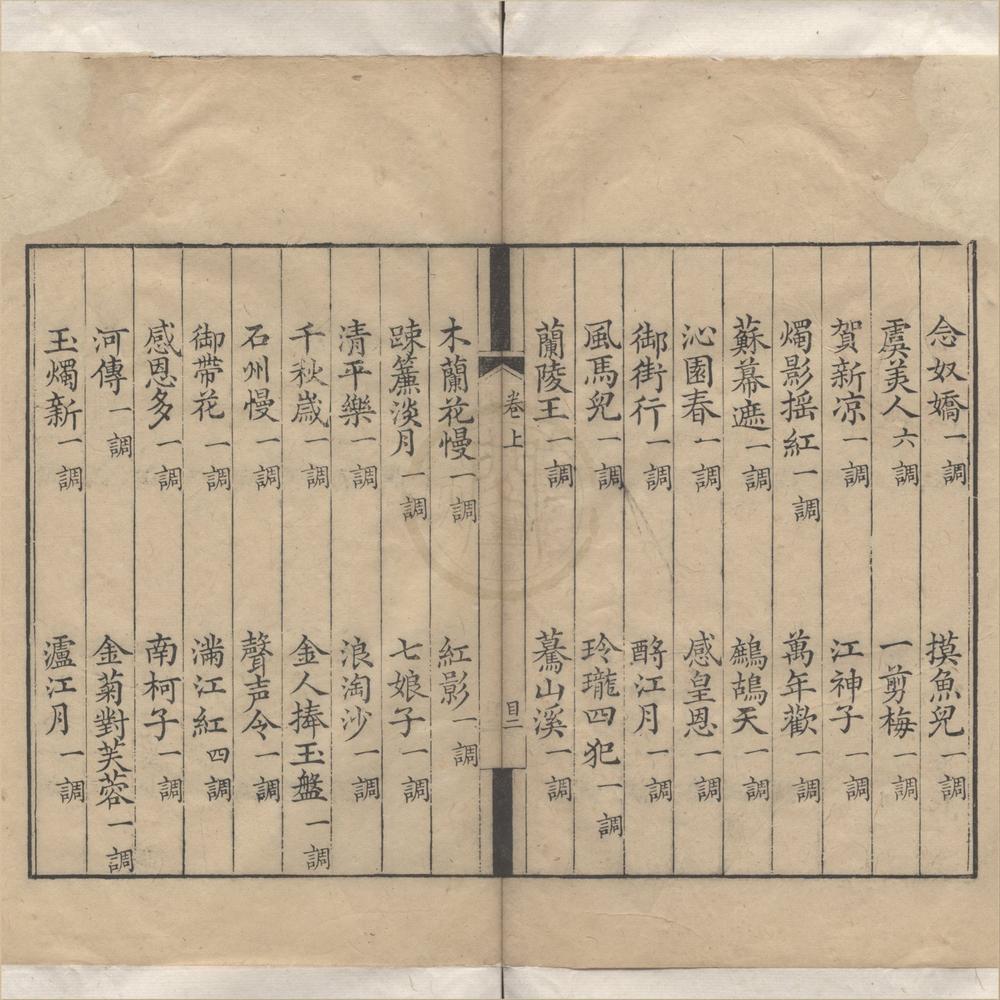 念奴嬌一調　摸魚兒一調
虞美人六調　一剪梅一調
賀新凉一調　江神子一調
燭影揺紅一調　萬年歡一調
蘇幕遮一調　鷓鴣天一調
沁園春一調　感皇恩一調
御街行一調　酹江月一調
風馬兒一調　玲瓏四犯一調
蘭陵王一調　驀山溪一調
卷上　目二
木蘭花慢一調　紅影一調
踈簾淡月一調　七娘子一調
清平樂一調　浪淘沙一調
千秋歲一調　金人捧玉盤一調
石州慢一調　聲声令一調
御帶花一調　滿江紅四調
感恩多一調　南柯子一調
河傳一調　金菊對芙蓉一調
玉燭新一調　瀘江月一調